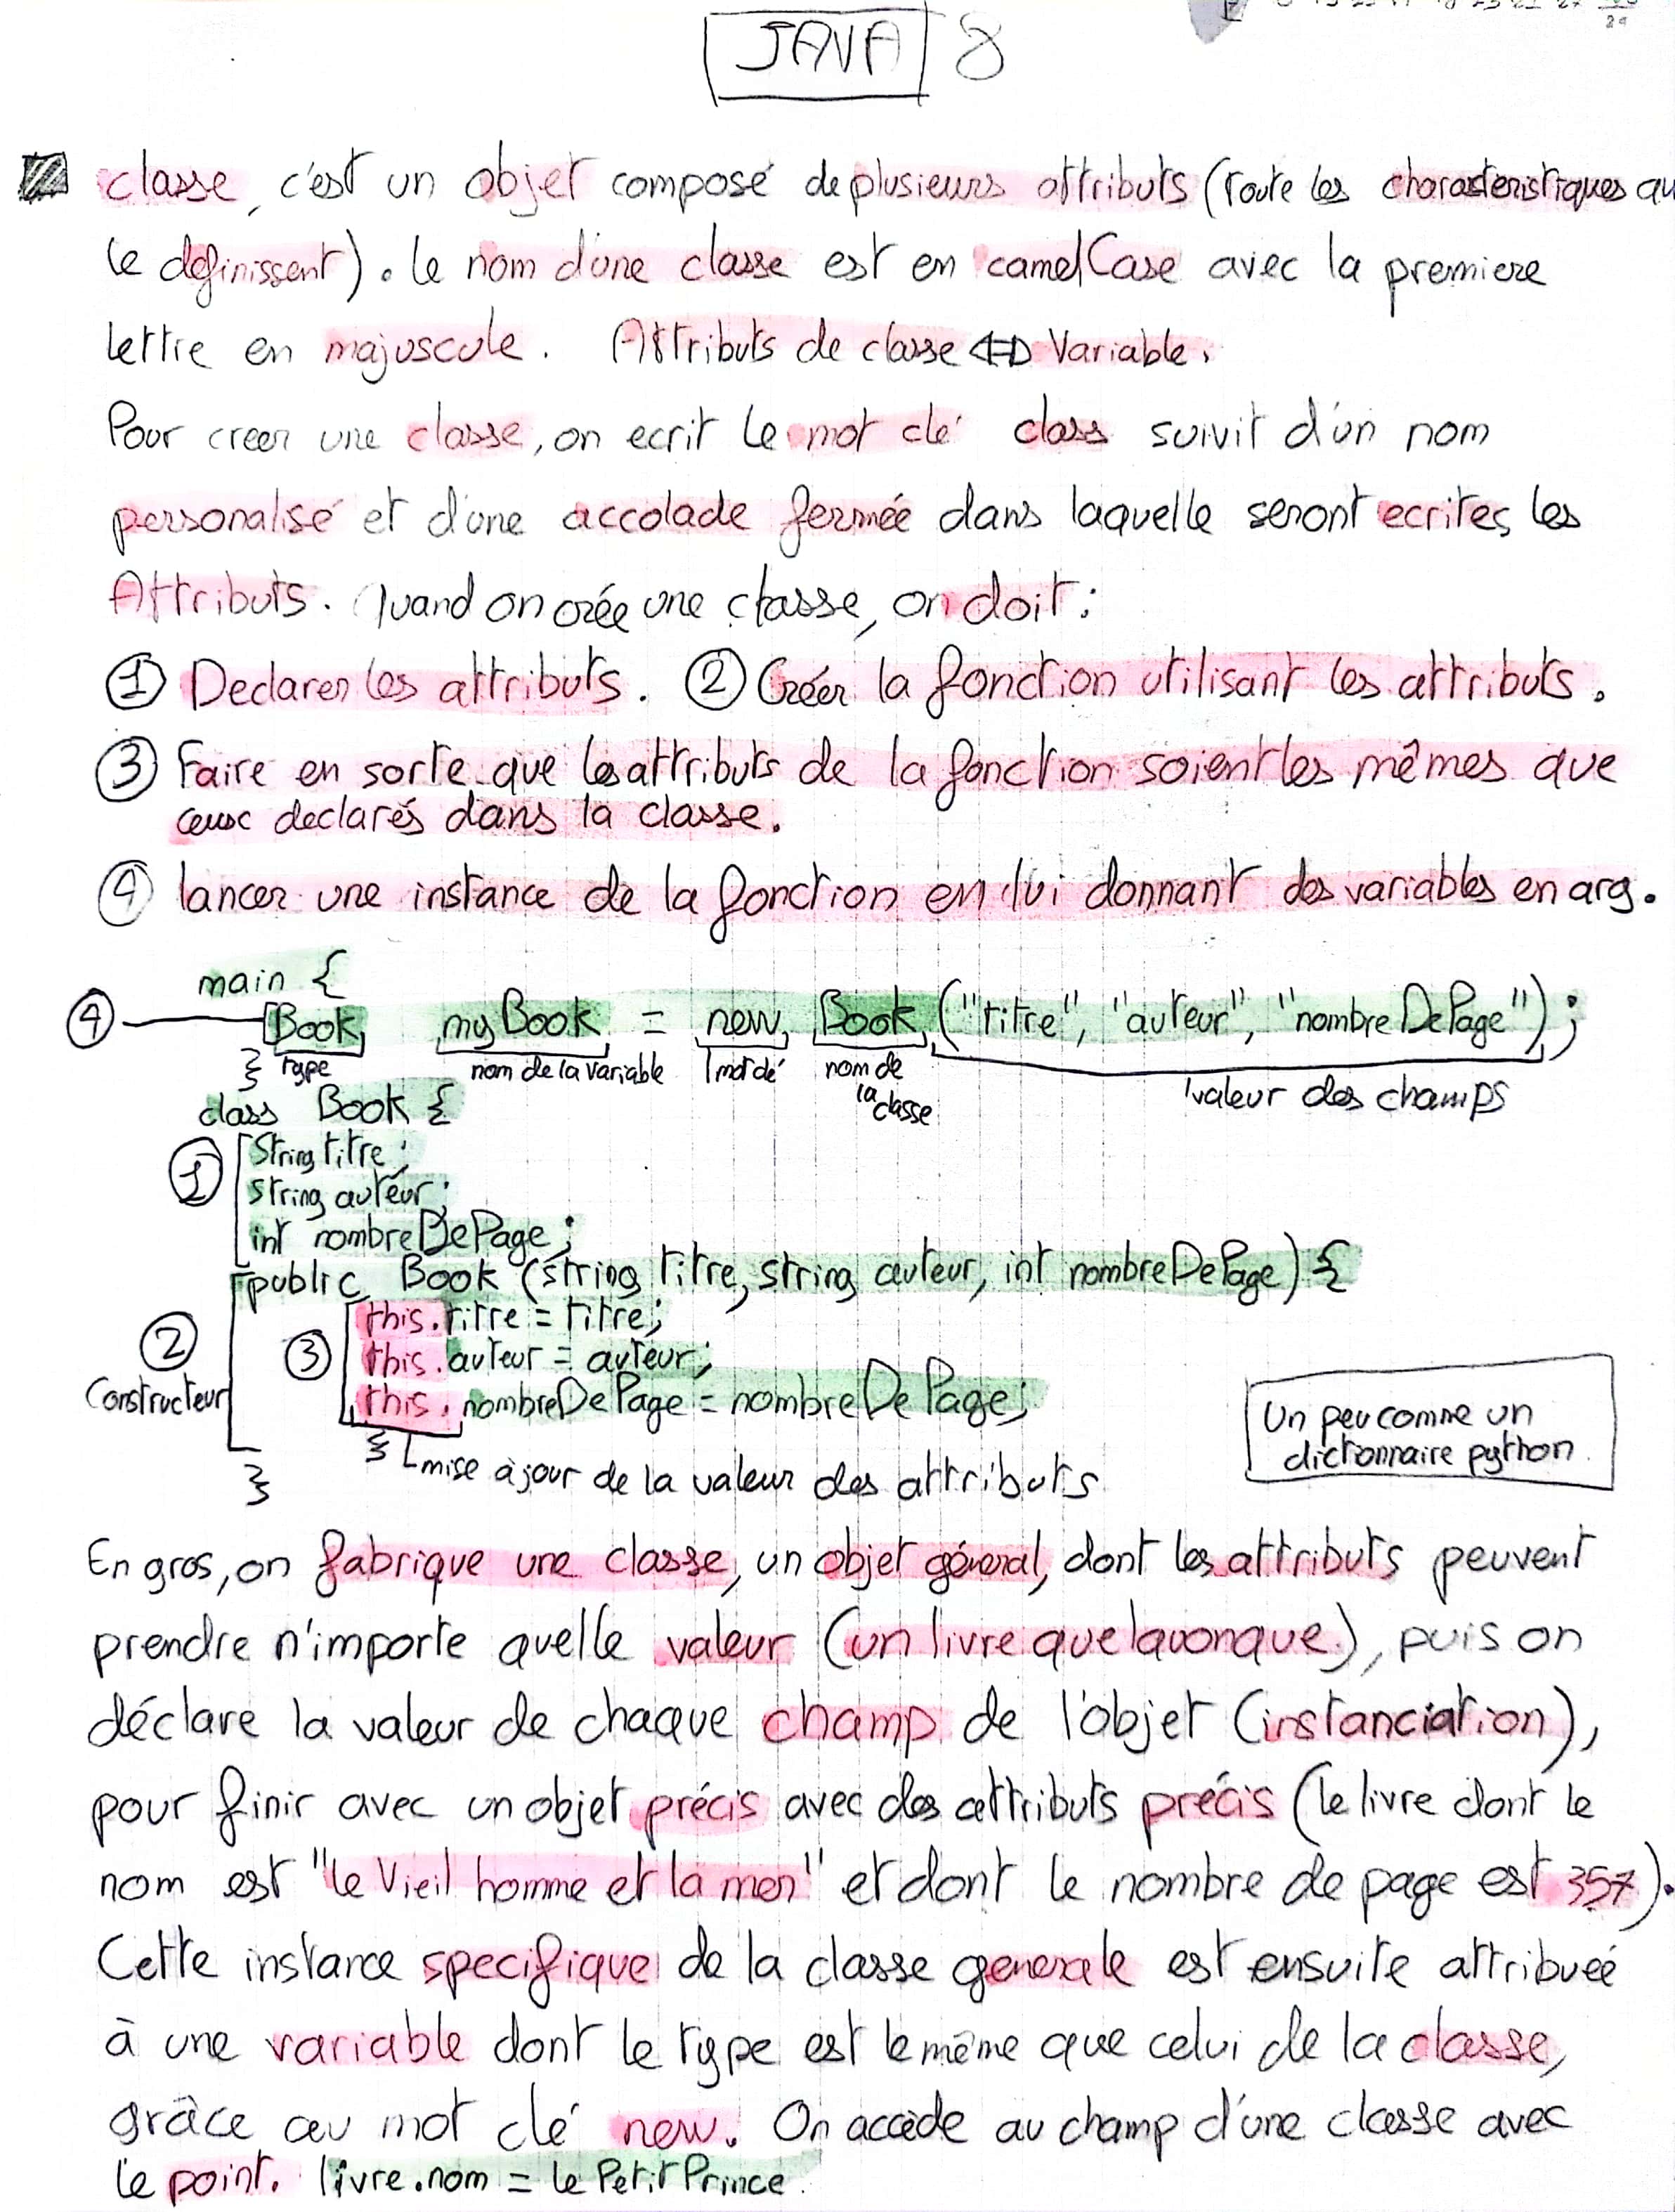 JAVA 8
classe, c'est un objet composé de plusieurs attributs (toute les charactéristiques qu
le definissent). le nom d'une classe est en camelCase avec la premiere
lettre en majuscule. Attributs de classe ⇔ Variable.
Pour creer une classe, on ecrit le mot clé class suivit d'un nom
personalisé et d'une accolade fermée dans laquelle seront ecrites les
Attributs. Quand on crée une classe, on doit :
① Declarer les attributs. ② Créer la fonction utilisant les attributs.
③ Faire en sorte que les attributs de la fonction soient les mêmes que
ceux declarés dans la classe.
④ lancer une instance de la fonction en lui donnant des variables en arg.
main {
④ Book myBook = new Book ("titre", "auteur", "nombreDePage");
} type nom de la variable mot clé nom de la classe valeur des champs
class Book {
① String titre;
string auteur;
int nombreDePage;
public Book (string titre, string auteur, int nombreDePage) {
this.titre = titre;
② ③ this.auteur = auteur;
Constructeur this.nombreDePage = nombreDePage;
} mise à jour de la valeur des attributs
}
Un peu comme un
dictionnaire python.
En gros, on fabrique une classe, un objet géneral, dont les attributs peuvent
prendre n'importe quelle valeur (un livre quelquonque), puis on
déclare la valeur de chaque champ de l'objet (instanciation),
pour finir avec un objet précis avec des attributs précis (le livre dont le
nom est "le Vieil homme et la mer" et dont le nombre de page est 357).
Cette instance specifique de la classe generale est ensuite attribuéé
à une variable dont le type est le même que celui de la classe,
grâce au mot clé new. On accède au champ d'une classe avec
le point. livre.nom = le Petit Prince.